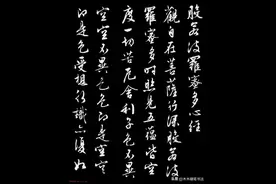 般若波羅蜜多心經
觀自在菩薩行深般若波
羅蜜多時照見五蘊皆空
度一切苦厄舍利子色不異
空空不異色色即是空空
即是色受想行識亦復如
头条 @木木硬笔书法